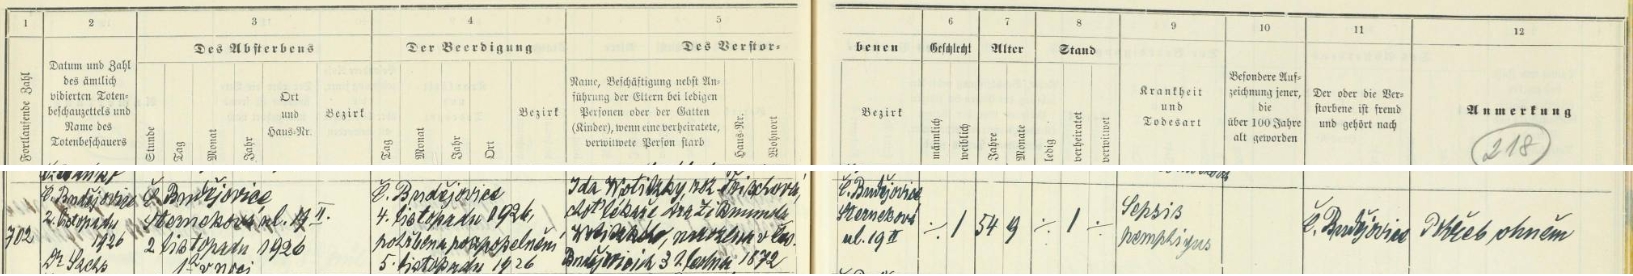 1
2
3
4
5
6
7
8
9
10
11
12
Des Absterbens
Der Beerdigung
Des Verstor-
benen
Geschlecht
Alter
Stand
Fortlaufende Zahl
Datum und Zahl
des ämtlich
vidierten Toten-
beschauzettels und
Name des
Totenbeschauers
Stunde
Tag
Monat
Jahr
Ort
und
Haus-Nr.
Bezirk
Tag
Monat
Jahr
Ort
Bezirk
Name, Beschäftigung nebst An-
führung der Eltern bei ledigen
Personen oder der Gatten
(Kinder), wenn eine verheiratete,
verwitwete Person starb
Haus-Nr.
Wohnort
Bezirk
männlich
weiblich
Jahre
Monate
ledig
verheiratet
verwitwet
Krankheit
und
Todesart
Besondere Auf-
zeichnung jener,
die
über 100 Jahre
alt geworden
Der oder die Ver-
storbene ist fremd
und gehört nach
Anmerkung
218
702
Č. Budějovice
2. listopadu
1926
Dr. Sachs
Č. Budějovice
Šternekova ul. 19 II.
2 listopadu 1926
Č. Budějovice
4. listopadu 1926,
pohřbena po zpopelnění
5. listopadu 1926
Ida Wotitzky roz.
choť lékaře Dra Zikmunda
narozena v Čes.
Budějovicích 3 1872
Č. Budějovice
Šternekova
ul. 19 II
÷ 1 54 9 ÷ 1 ÷
Sepsis
pemphigus
Č. Budějovice
Pohřeb ohněm